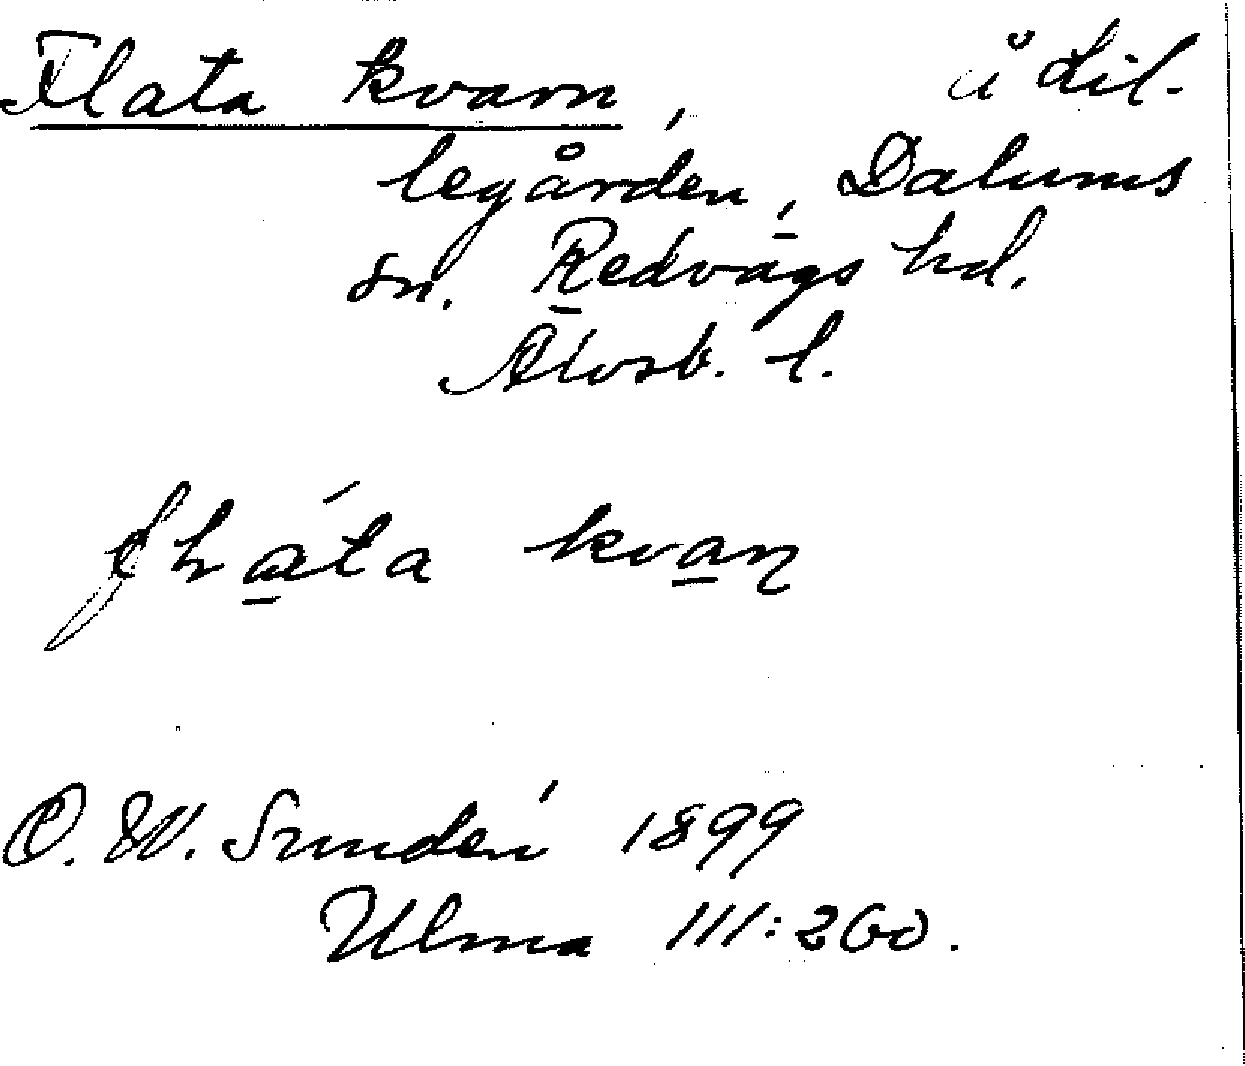 Flata kvarn, å Lil-
legården, Dalums
sn. Redvägs hd.
Älvsb. l.
fḷáta kvaṇ
O. W. Sundén 1899
Ulma 111:260.